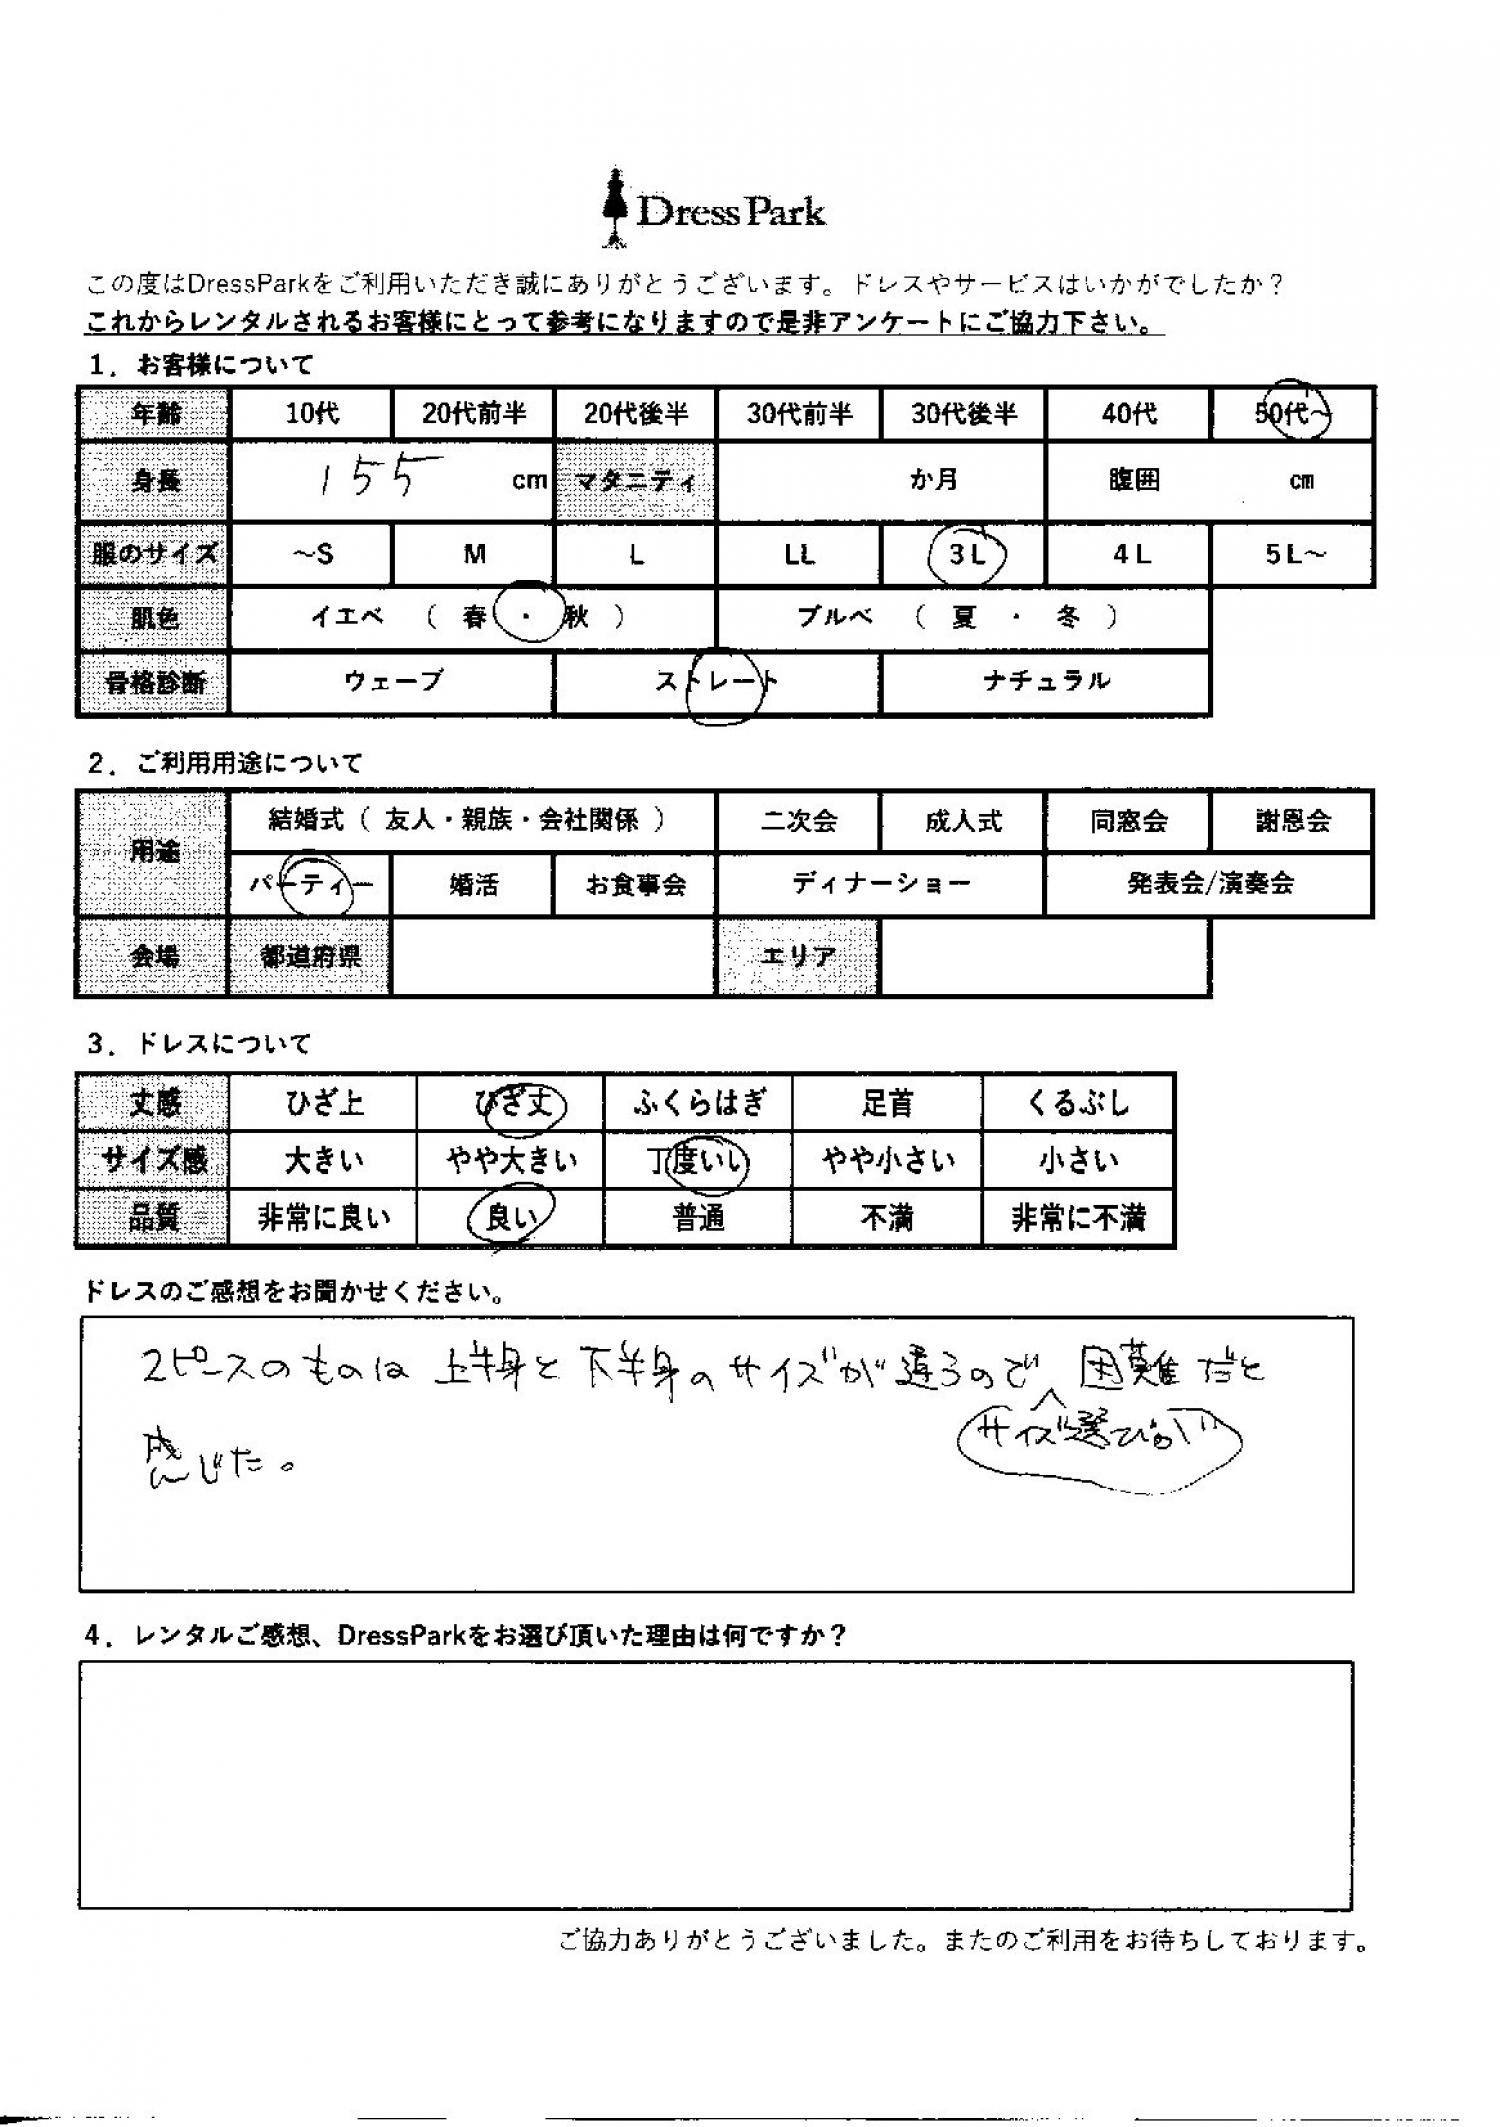 DressPark
この度はDressParkをご利用いただき誠にありがとうございます。ドレスやサービスはいかがでしたか?
これからレンタルされるお客様にとって参考になりますので是非アンケートにご協力下さい。
1. お客様について
年齢 10代 20代前半 20代後半 30代前半 30代後半 40代 50代~
身長 155 cm マタニティ か月 腹囲 cm
服のサイズ ~S M L LL 3L 4L 5L~
肌色 イエベ ( 春 ・ 秋 ) ブルベ ( 夏 ・ 冬 )
骨格診断 ウェーブ ストレート ナチュラル
2. ご利用用途について
用途 結婚式 ( 友人・親族・会社関係 ) 二次会 成人式 同窓会 謝恩会
パーティー 婚活 お食事会 ディナーショー 発表会/演奏会
会場 都道府県 エリア
3. ドレスについて
丈感 ひざ上 ひざ丈 ふくらはぎ 足首 くるぶし
サイズ感 大きい やや大きい 丁度いい やや小さい 小さい
品質 非常に良い 良い 普通 不満 非常に不満
ドレスのご感想をお聞かせください。
2ピースのものは 上半身と下半身のサイズが違うので 困難だと
サイズ選びが
感じた。
4. レンタルご感想、DressParkをお選び頂いた理由は何ですか?
ご協力ありがとうございました。またのご利用をお待ちしております。